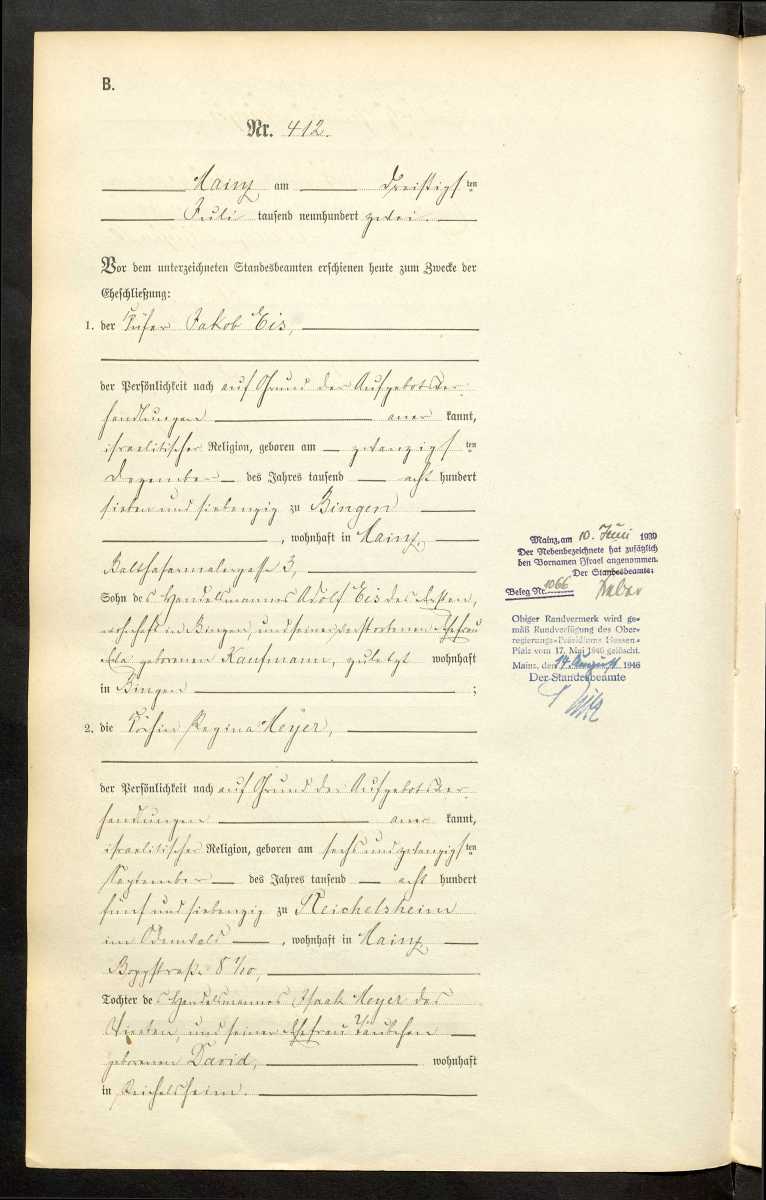 B.
Nr. 412.
Mainz am dreißigsten
Juli tausend neunhundert zwei.
Vor dem unterzeichneten Standesbeamten erschienen heute zum Zwecke der
Eheschließung:
1. der Küfer Jakob Eis,
der Persönlichkeit nach auf Grund der Aufgebotsver-
handlungen aner kannt,
israelitischer Religion, geboren am zwanzigsten
Dezember des Jahres tausend acht hundert
sieben und siebenzig zu Bingen
, wohnhaft in Mainz,
Balthasarmalergasse 3,
Sohn des Handelsmannes Adolf Eis des Ersten,
wohnhaft in Bingen, und seiner verstorbenen Ehefrau
geborenen Kaufmann, zuletzt wohnhaft
in Bingen ;
2. die Köchin Regina Meyer,
der Persönlichkeit nach auf Grund der Aufgebotsver-
handlungen aner kannt,
israelitischer Religion, geboren am sechs und zwanzigsten
September des Jahres tausend acht hundert
fünf und siebenzig zu Reichelsheim
im Odenwald , wohnhaft in Mainz
Boppstraße 8 1/10,
Tochter des Handelsmannes Isaak Meyer des
Vierten, und seiner Ehefrau Täubchen
geborenen David, wohnhaft
in Reichelsheim.
Mainz, am 10. Juni 1939
Der Nebenbezeichnete hat zusätzlich
den Vornamen Israel angenommen.
Der Standesbeamte:
Beleg Nr. 1066
Obiger Randvermerk wird ge-
mäß Rundverfügung des Ober-
regierungs-Präsidiums Hessen-
Pfalz vom 17. Mai 1946 gelöscht.
Mainz, den 14. August 1946
Der Standesbeamte